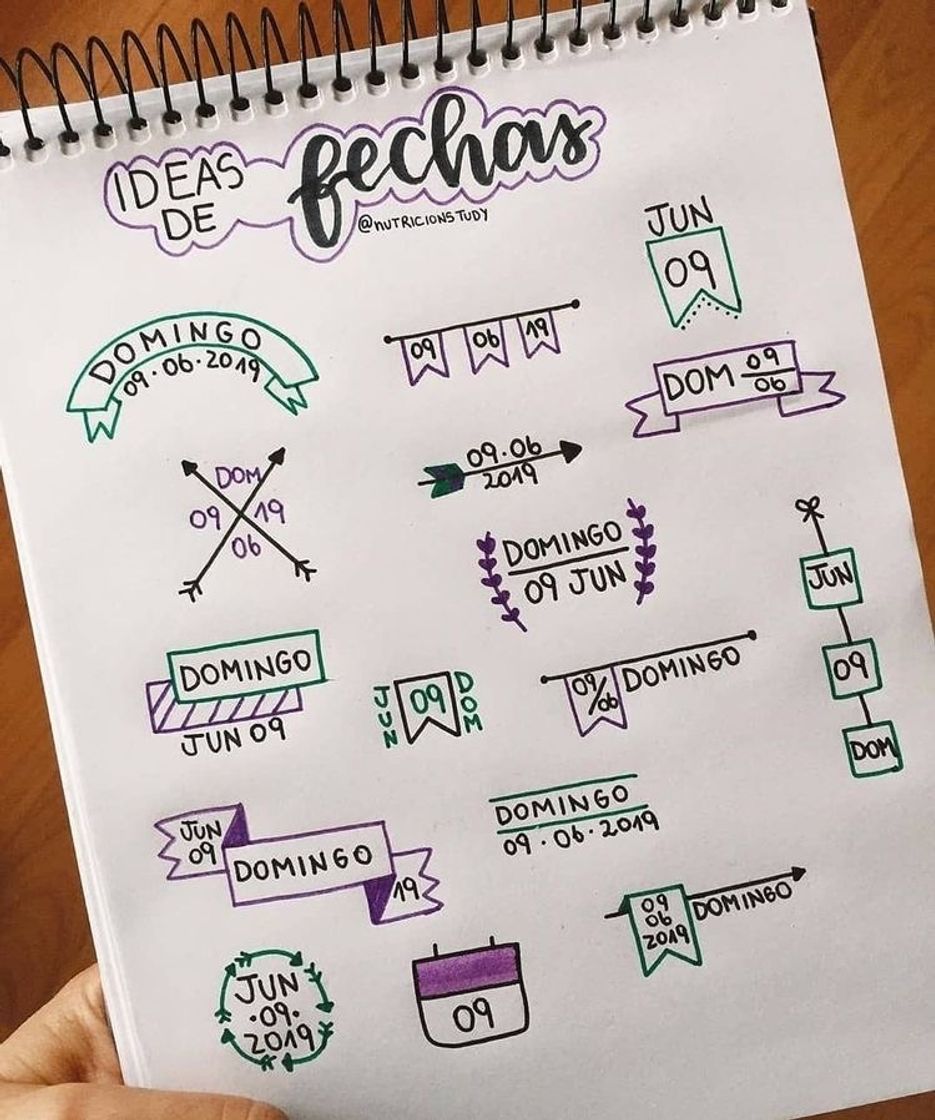 IDEAS
DE
fechas
@nutricionstudy
JUN
09
DOMINGO
09.06.2019
09 06 19
DOM 09/06
DOM
09 19
06
09.06
2019
DOMINGO
09 JUN
JUN
09
DOM
DOMINGO
JUN 09
JUN 09 DOM
09/06 DOMINGO
JUN
09
DOMINGO
19
DOMINGO
09.06.2019
09
06
2019
DOMINGO
JUN
·09·
2019
09